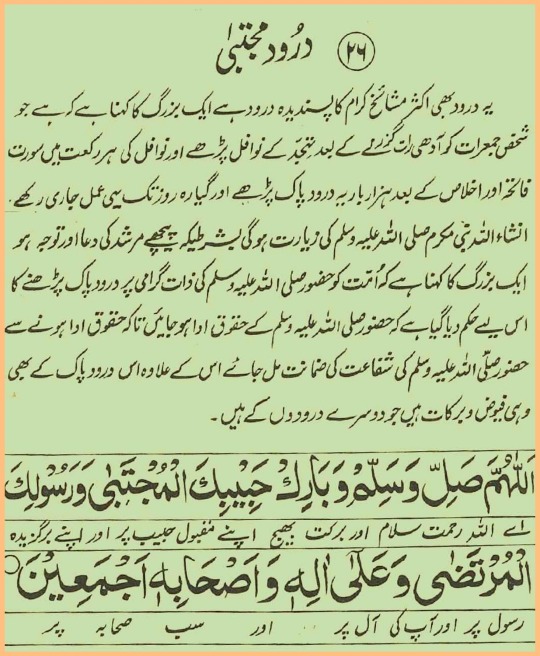 ۲۶ درُود مجتبیٰ
یہ درود بھی اکثر مشائخ کرام کا پسندیدہ درود ہے ایک بزرگ کا کہنا ہے کہ ہے جو
شخص جمعرات کو آدھی رات گزرنے کے بعد تہجد کے نوافل پڑھے اور نوافل کی ہر رکعت میں سورت
فاتحہ اور اخلاص کے بعد ہزار بار یہ درود پاک پڑھے اور گیارہ روز تک یہی عمل جاری رکھے۔
انشاء اللہ نبی مکرم صلی اللہ علیہ وسلم کی زیارت ہوگی بشرطیکہ پیچھے مرشد کی دعا اور توجہ ہو
ایک بزرگ کا کہنا ہے کہ اُمّت کو حضور صلی اللہ علیہ وسلم کی ذات گرامی پر درود پاک پڑھنے کا
اس لیے حکم دیا گیا ہے کہ حضور صلی اللہ علیہ وسلم کے حقوق ادا ہو جائیں تاکہ حقوق ادا ہونے سے
حضور صلّی اللہ علیہ وسلم کی شفاعت کی ضمانت مل جائے اس کے علاوہ اس درود پاک کے بھی
وہی فیوض و برکات ہیں جو دوسرے درودوں کے ہیں۔
اَللّٰهُمَّ صَلِّ وَسَلِّمْ وَبَارِكْ حَبِيْبِكَ الْمُجْتَبٰى وَرَسُوْلِكَ
اے اللہ رحمت سلام اور برکت بھیج اپنے مقبول حبیب پر اور اپنے برگزیدہ
الْمُرْتَضٰى وَعَلٰٓى اٰلِهٖ وَاَصْحَابِهٖ اَجْمَعِيْنَ
رسول پر اور آپ کی آل پر اور سب صحابہ پر